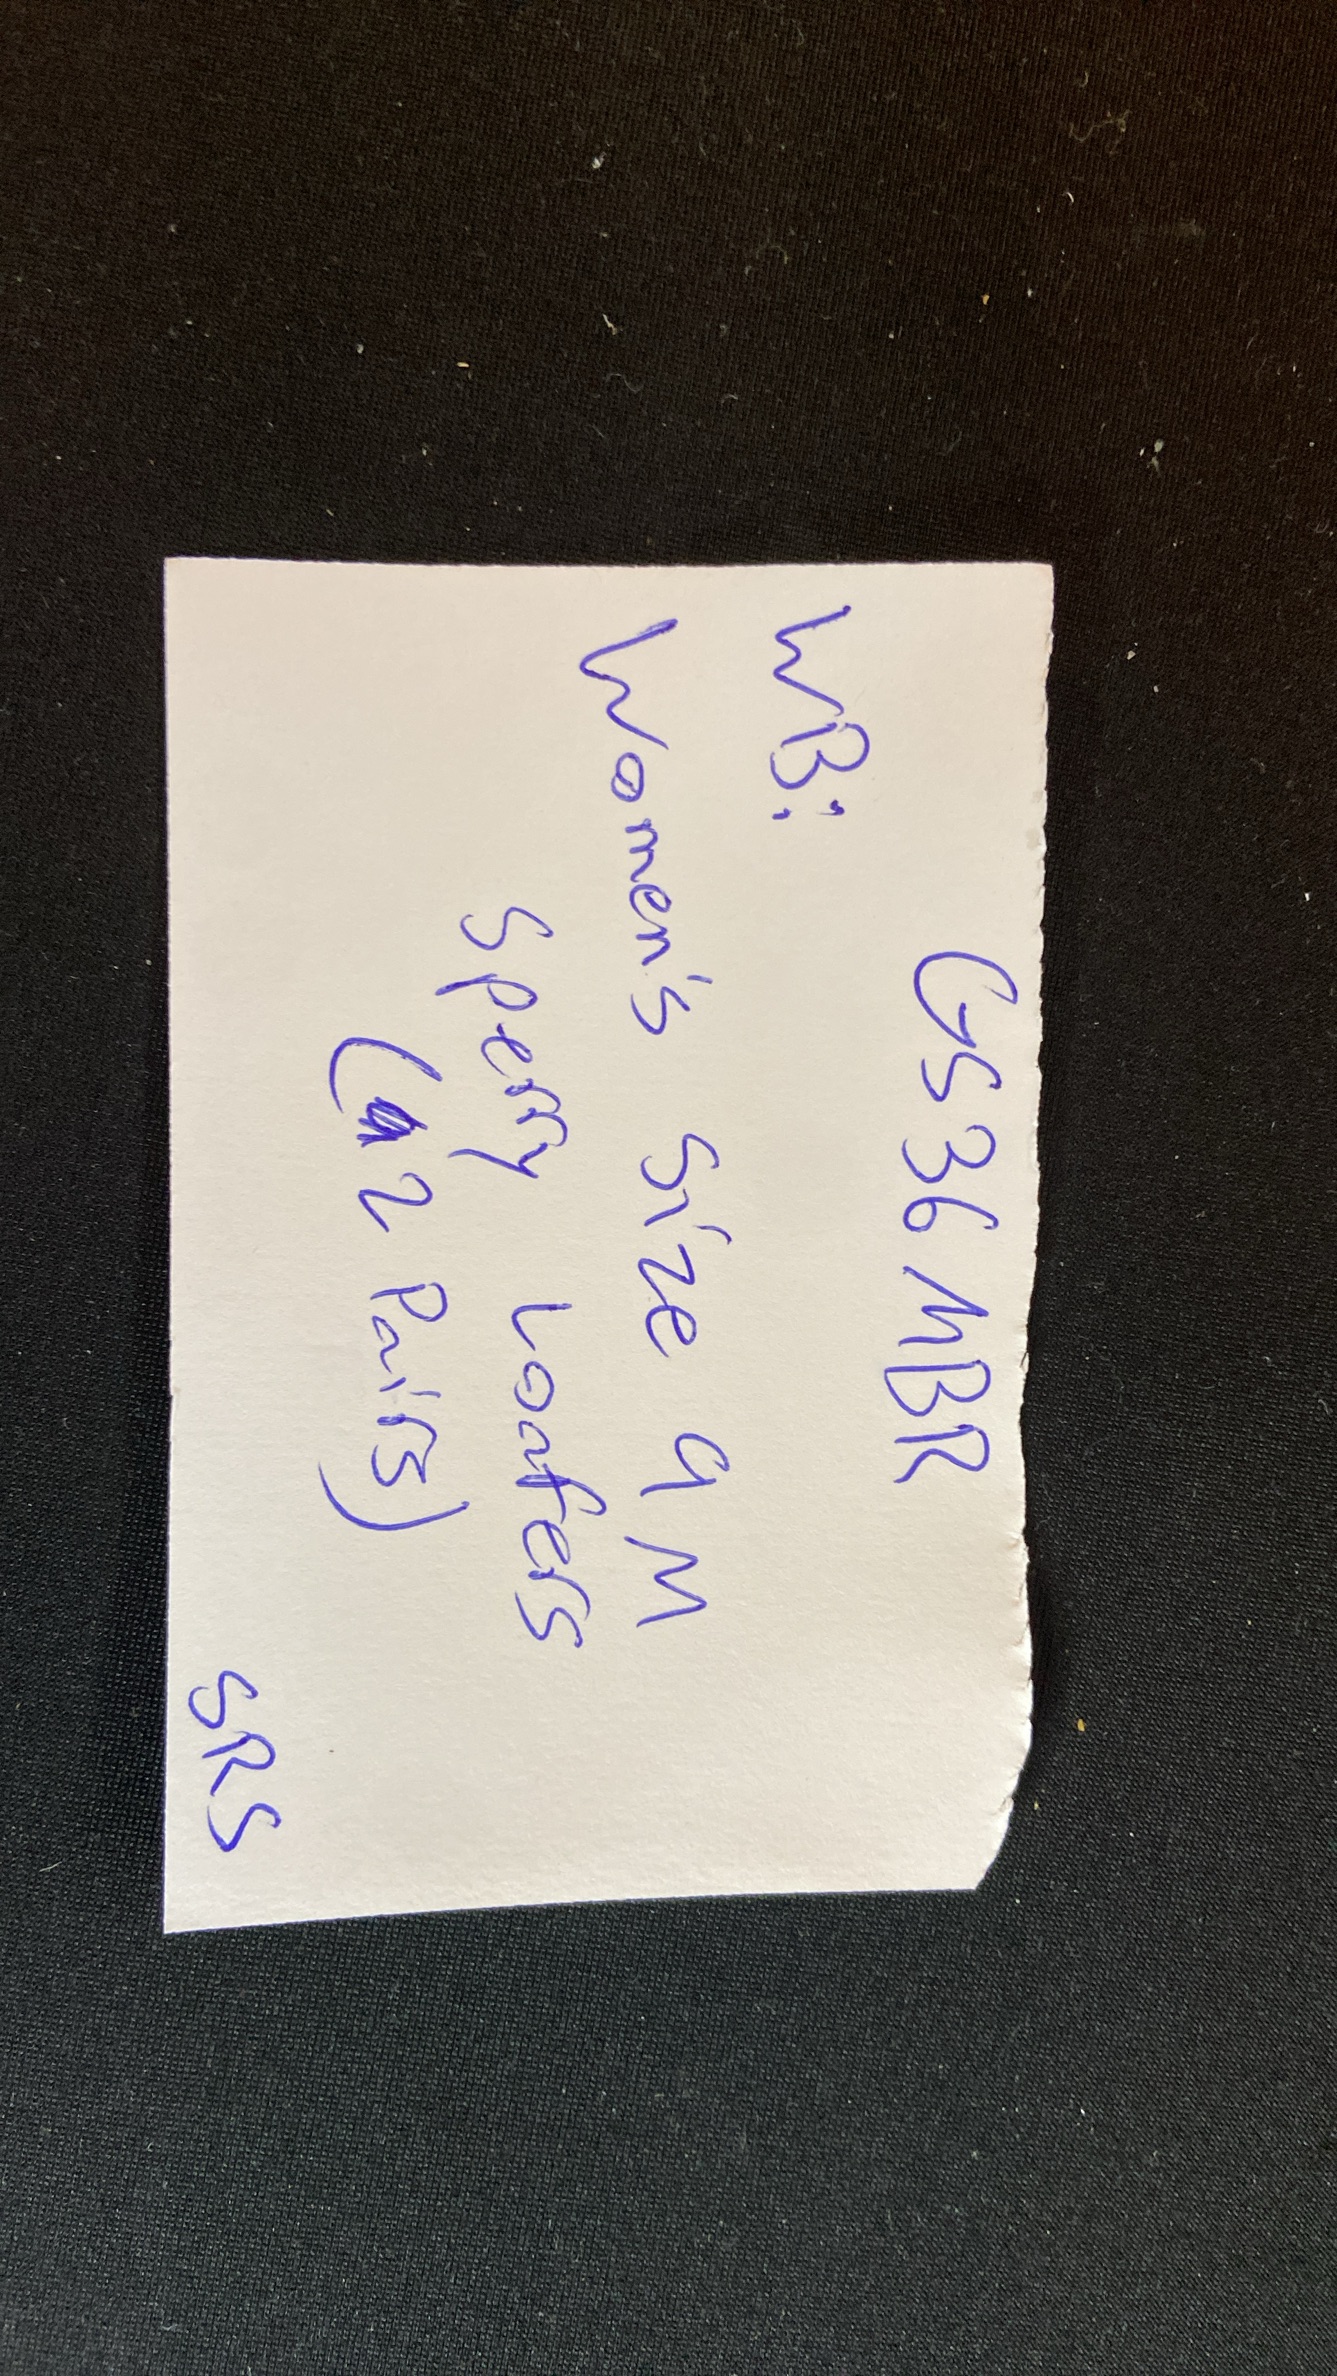 GS36MBR
WB:
Women's size 9M
Sperry Loafers
(2 Pairs)
SRS